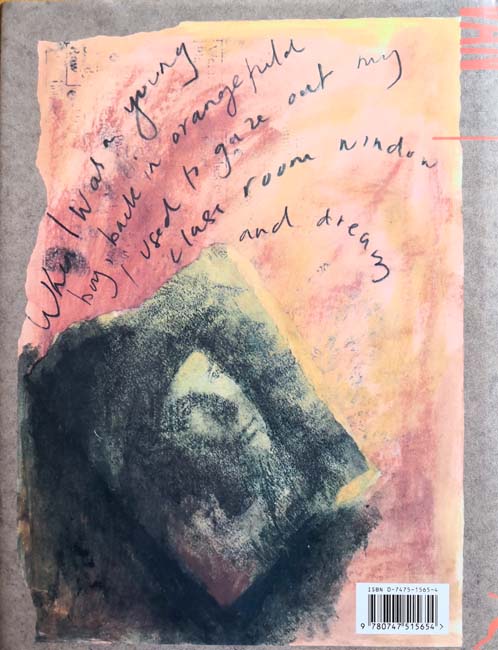 When I was a young
boy back in orangefield
I used to gaze out my
class room window
and dream
ISBN 0-7475-1565-4
9 780747 515654 >